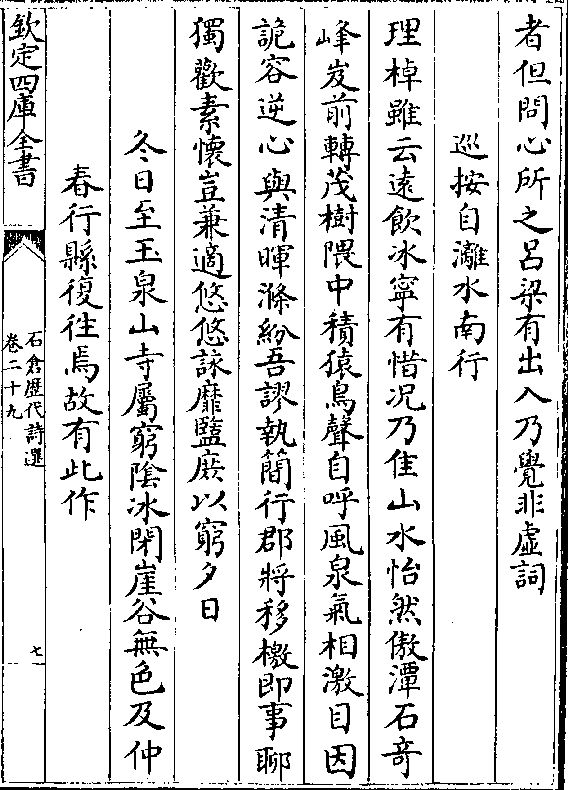 者但問心所之呂梁有出入乃覺非虛詞
巡按自灕水南行
理棹雖云遠飲冰寧有惜况乃佳山水怡然傲潭石竒
峰岌前轉茂樹隈中積猿鳥聲自呼風泉氣相激目因
詭容逆心與清暉滌紛吾謬執簡行郡將移檄即事聊
獨歡素懷豈兼適悠悠詠靡盬庶以窮夕日
冬日至玉泉山寺屬窮陰冰閉崖谷無色及仲
春行縣復徃焉故有此作
欽定四庫全書
石倉歷代詩選
卷二十九
七